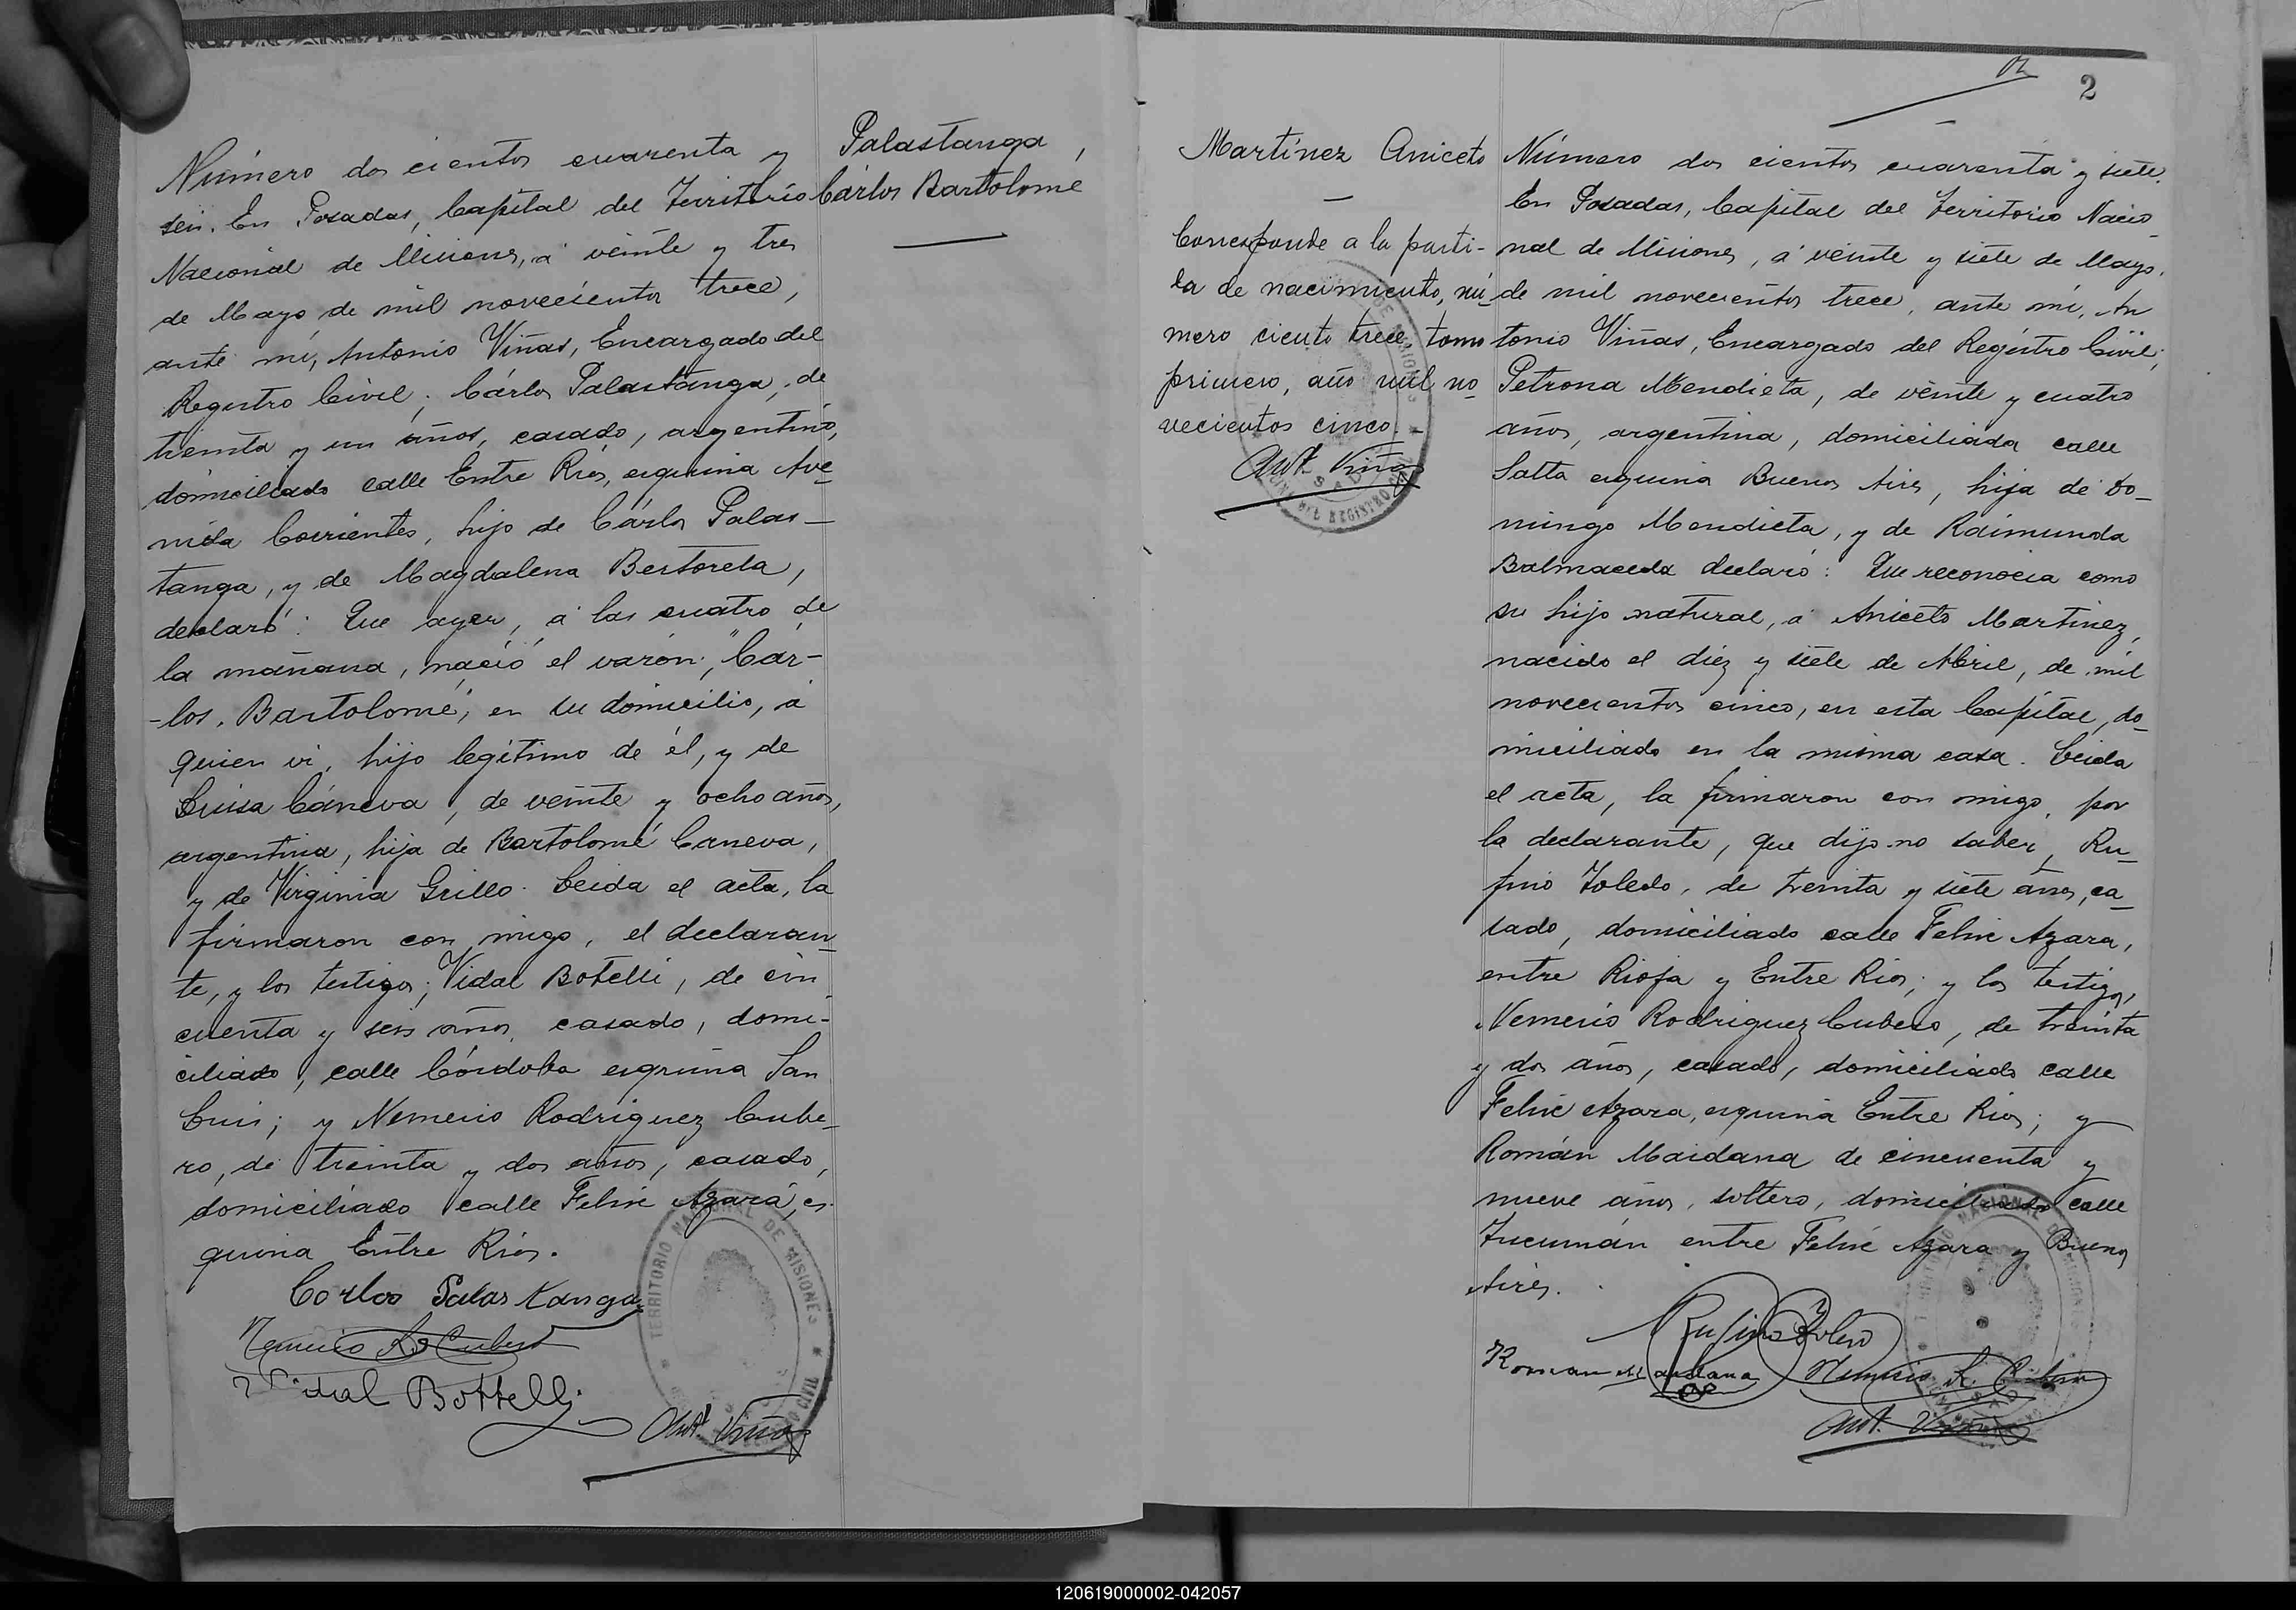 Número dos cientos cuarenta y
seis. En Posadas, Capital del Território
Nacional de Misiones, á veinte y tres
de Mayo de mil novecientos trece,
ante mí, Antonio Viñas, Encargado del
Registro Civil; Cárlos Palastanga, de
treinta y un años, casado, argentino,
domiciliado calle Entre Rios, esquina Ave-
nida Corrientes, hijo de Cárlos Palas-
tanga, y de Magdalena Bertoreta,
declaró: Que ayer, á las cuatro de
la mañana, nació el varón; "Cár-
-los, Bartolomé", en su domicilio, á
quien vi, hijo legítimo de él, y de
Luisa Cáneva, de veinte y ocho años,
argentina, hija de Bartolomé Caneva,
y de Virginia Grillo. Leida el acta, la
firmaron con migo, el declaran-
te, y los testigos; Vidal Botelli, de cin-
cuenta y seis años, casado, domi-
ciliado, calle Córdoba esquina San
Luis; y Nemecio Rodriguez Cube-
ro, de treinta y dos años, casado,
domiciliado calle Felix Azara, es-
quina Entre Rios.
Carlos Palastanga
Nemecio R. Cubero
Vidal Bottelli
Ant. Viñas
TERRITORIO NACIONAL DE MISIONES
Palastanga,
Cárlos Bartolomé
2
Martínez Aniceto
Corresponde a la parti-
da de nacimiento, nú-
mero ciento trece, tomo
primero, año mil no-
vecientos cinco.-
Ant. Viñas
Número dos cientos cuarenta y siete.
En Posadas, Capital del Territorio Nacio-
nal de Misiones, á veinte y siete de Mayo,
de mil novecientos trece, ante mi, An
tonio Viñas, Encargado del Registro Civil;
Petrona Mendieta, de veinte y cuatro
años, argentina, domiciliada calle
Salta esquina Buenos Aires, hija de Do-
mingo Mendieta, y de Raimunda
Balmaceda declaró: Que reconocia como
su hijo natural, á Aniceto Martinez,
nacido el diez y siete de Abril, de mil
novecientos cinco, en esta Capital, do-
miciliado en la misma casa. Leida
el acta, la firmaron con migo, por
la declarante, que dijo no saber, Ru-
fino Toledo, de treinta y siete años, ca-
sado, domiciliado calle Felix Azara,
entre Rioja y Entre Rios; y los testigos,
Nemecio Rodriguez Cubero, de treinta
y dos años, casado, domiciliado calle
Felix Azara, esquina Entre Rios; y
Román Maidana de cincuenta y
nueve años, soltero, domiciliado calle
Tucumán entre Felix Azara y Buenos
Aires.
Rufino Toledo
Roman Maidana Nemecio R. Cubero
Ant. Viñas
120619000002-042057